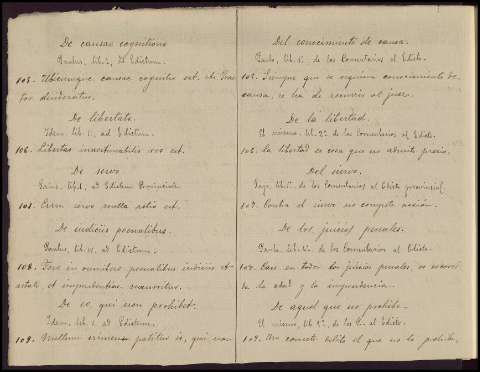 De causae cognitione
Paulus, lib. 1, ad Edictum.
105. Ubicumque causae cognitio est, ibi Prae-
tor desideratur.
De libertate.
Idem, lib. ad Edictum.
106. Libertas inaestimabilis res est.
De servo
Gaius, lib. 1, ad Edictum Provinciale
107. Cum servo nulla actio est.
De iudiciis poenalibus.
Paulus, lib. ad Edictum.
108. Fere in omnibus poenalibus iudiciis et
aetati et imprudentiae succurritur.
De eo, qui non prohibet.
Idem, lib. ad Edictum.
109. Nullum crimen patitur is, qui non
Del conocimiento de causa.
Paulo, lib. de los Comentarios al Edicto.
105. Siempre que se requiera conocimiento de
causa, se ha de recurrir al juez.
De la libertad.
El mismo, lib. 2º de los Comentarios al Edicto.
106. La libertad es cosa que no admite precio.
Del siervo.
Gayo, lib. 1º de los Comentarios al Edicto provincial.
107. Contra el siervo no compete acción.
De los juicios penales.
Paulo, lib. de los Comentarios al Edicto.
108. Casi en todos los juicios penales, se socorre
la edad y la imprudencia.
De aquel que no prohibe.
El mismo, lib. de los al Edicto.
109. No comete delito el que no lo prohibe,